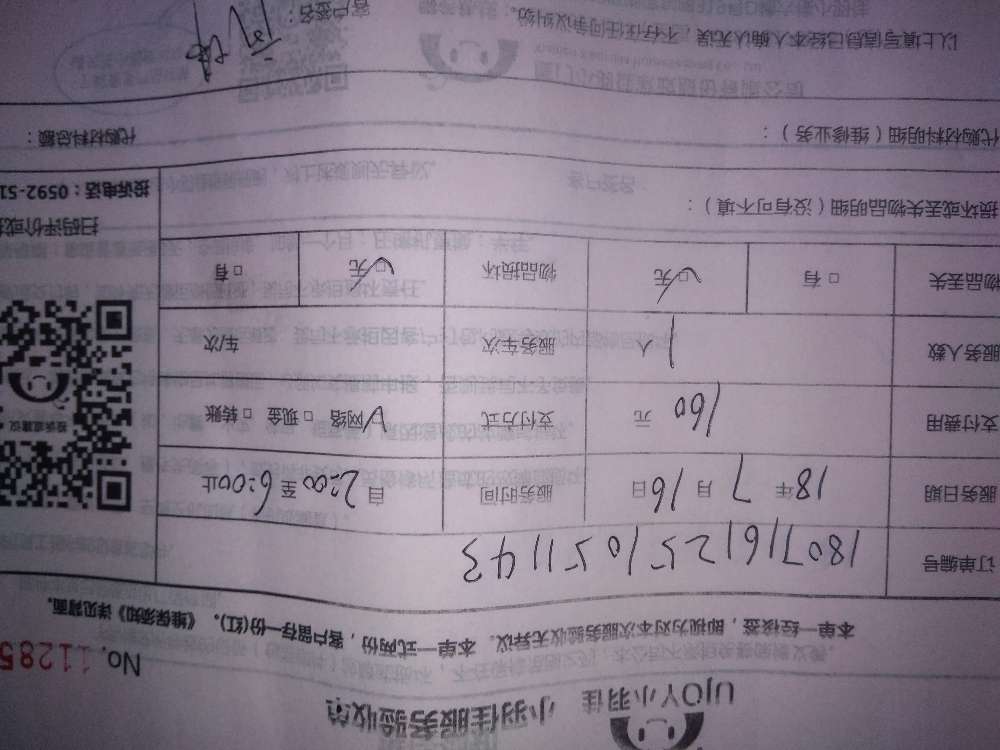 UJOY小羽佳 小羽佳服务验收单
No.11285
本单一经接签，即视为对本次服务验收无异议。本单一式两份，客户留存一份(红)。《维保须知》详见背面。
订单编号 18071612510511143
服务日期 18年 7月 16日 服务时间 自2:00至6:00止
支付费用 160 元 支付方式 网络 □现金 □转账
服务人数 1 人 服务车次 车/次
物品丢失 □有 □无 物品损坏 □无 □有
投诉建议
扫码评价或投
投诉电话：0592-51
损坏或丢失物品明细（没有可不填）：
代购材料明细（维修业务）： 代购材料总额：
以上填写信息已经本人确认无误，不存在任何争议纠纷。 客户签名：